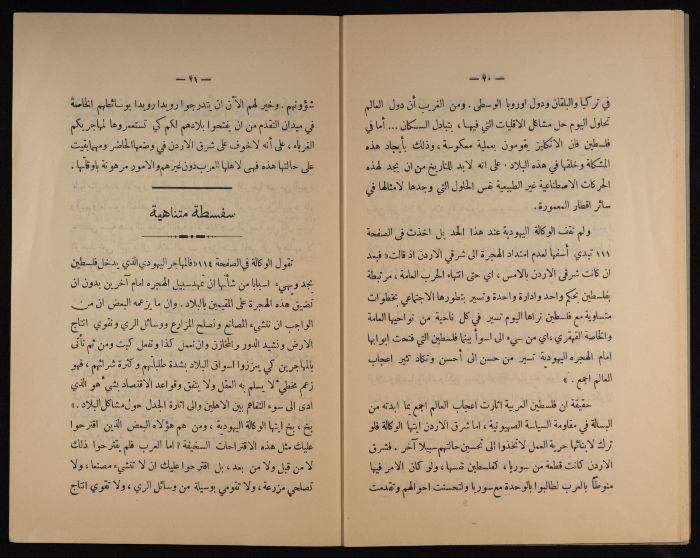 — ٣٠ —
في تركيا والبلقان ودول اوروبا الوسطى . ومن الغريب أن دول العالم
تحاول اليوم حل مشاكل الاقليات التي فيها ، بتبادل السكان ... أما في
فلسطين فان الانكليز يقومون بعملية معكوسة ، وذلك بأيجاد هذه
المشكلة وخلقها في هذه البلاد . على انه لابد للتاريخ من ان يجد لهذه
الحركات الاصطناعية غير الطبيعية نفس الحلول التي وجدها لامثالها في
سائر اقطار المعمورة .
ولم تقف الوكالة اليهودية عند هذا الحد بل اخذت في الصفحة
١١١ تبدي أسفها لعدم امتداد الهجرة الى شرقي الاردن اذ قالت « فبعد
ان كانت شرقي الاردن بالامس ، اي حتى انتهاء الحرب العامة ، مرتبطة
بفلسطين بحكم واحد وادارة واحدة وتسير بتطورها الاجتماعي بخطوات
متساوية مع فلسطين نراها اليوم تسير في كل ناحية من نواحيها العامة
والخاصة القهقرى ، اي من سيء الى اسوأ بينما فلسطين التي فتحت ابوابها
امام الهجره اليهودية تسير من حسن الى أحسن وتكاد تثير اعجاب
العالم اجمع . »
حقيقة ان فلسطين العربية اثارت اعجاب العالم اجمع بما ابدته من
البسالة في مقاومة السياسة الصهيونية ، اما شرق الاردن ايتها الوكالة فلو
ترك لابنائها حرية العمل لاتخذوا الى تحسين حالتهم سبيلا آخر . فشرق
الاردن كانت قطعة من سوريا ، كفلسطين نفسها ، ولو كان الامر فيها
منوطاً بالعرب لطالبوا بالوحدة مع سوريا ولتحسنت احوالهم وتقدمت
— ٣١ —
شؤونهم . وخير لهم الآن ان يتدرجوا رويدا رويدا بوسائطهم الخاصة
في ميدان التقدم من ان يفتحوا بلادهم لكم كي تستعمروها لمهاجريكم
الغرباء ، على أنه لاخوف على شرق الاردن في وضعها الحاضر ومهما بقيت
على حالتها هذه فهى لاهلها العرب دون غيرهم والامور مرهونة باوقاتها .
سفسطة متناهية
تقول الوكالة في الصفحة ١١٤ « فالمهاجر اليهودي الذي يدخل فلسطين
يجد ويهيء اسبابا من شأنها ان تمهد سبيل الهجره امام آخرين بدون ان
تضيق هذه الهجرة على المقيمين بالبلاد . وان ما يزعمه البعض ان من
الواجب ان ننشيء المصانع ونصلح المزارع ووسائل الري ونقوي انتاج
الارض ونشيد الدور والمخازن وان نعمل كذا ونفعل كيت ومن ثم تأتي
بالمهاجرين كي يعززوا اسواق البلاد بشدة طلباتهم وكثرة شرائهم ، فهو
زعم مخطيء لا يسلم به العقل ولا يتفق وقواعد الاقتصاد بشيء هو الذي
ادى الى سوء التفاهم بين الاهلين والى اثارة الجدل حول مشاكل البلاد . »
بخ ، بخ ايتها الوكالة اليهودية ، ومن هم هؤلاء البعض الذين اقترحوا
عليك مثل هذه الاقتراحات السخيفة ؟ اما العرب فلم يقترحوا ذلك
لا من قبل ولا من بعد ، بل اقترحوا عليك ان لا تنشيء مصنعا ، ولا
تصلحي مزرعة ، ولا تقومي بوسيلة من وسائل الري ، ولا تقوي انتاج